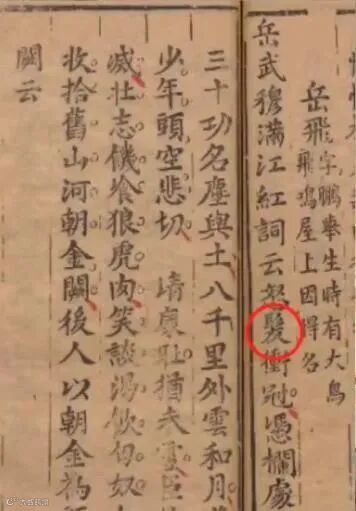 岳飛字鵬舉生時有大鳥
飛鳴屋上因得名
岳武穆滿江紅詞云怒髮衝冠憑欄處
三十功名塵與土八千里外雲和月
少年頭空悲切 靖康耻猶未雪臣
滅壯志饑飡狼虎肉笑談渴飲匈奴
收拾舊山河朝金闕後人以朝金為
闕云